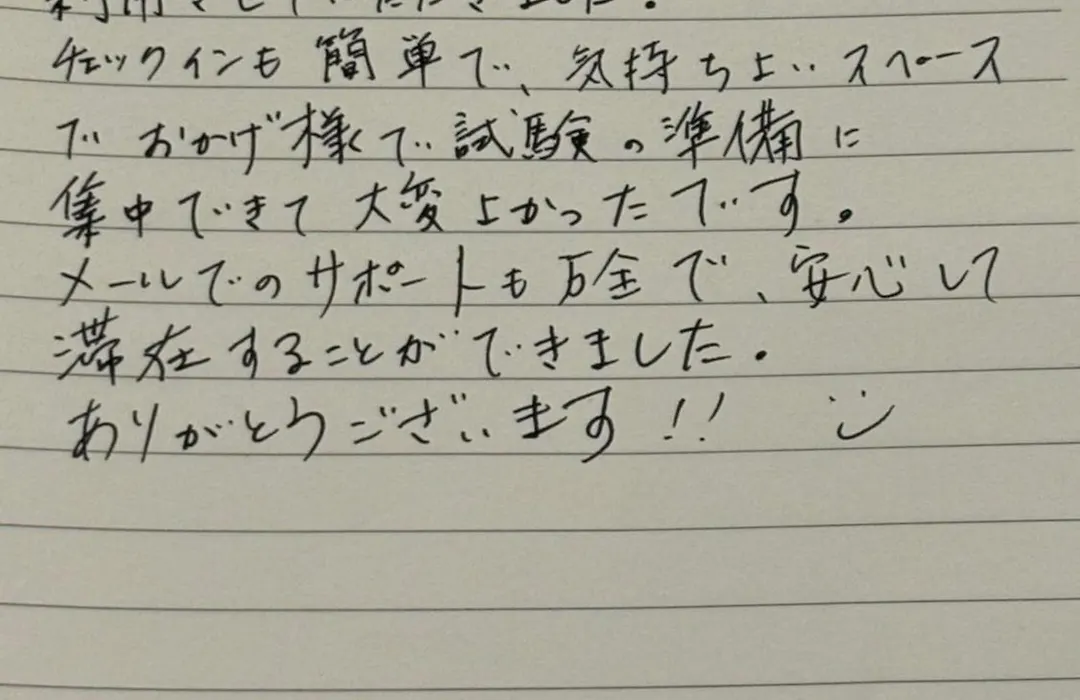 利用させていただきました。
チェックインも簡単で、気持ちよいスペース
でおかげ様で試験の準備に
集中できて大変よかったです。
メールでのサポートも万全で、安心して
滞在することができました。
ありがとうございます!!